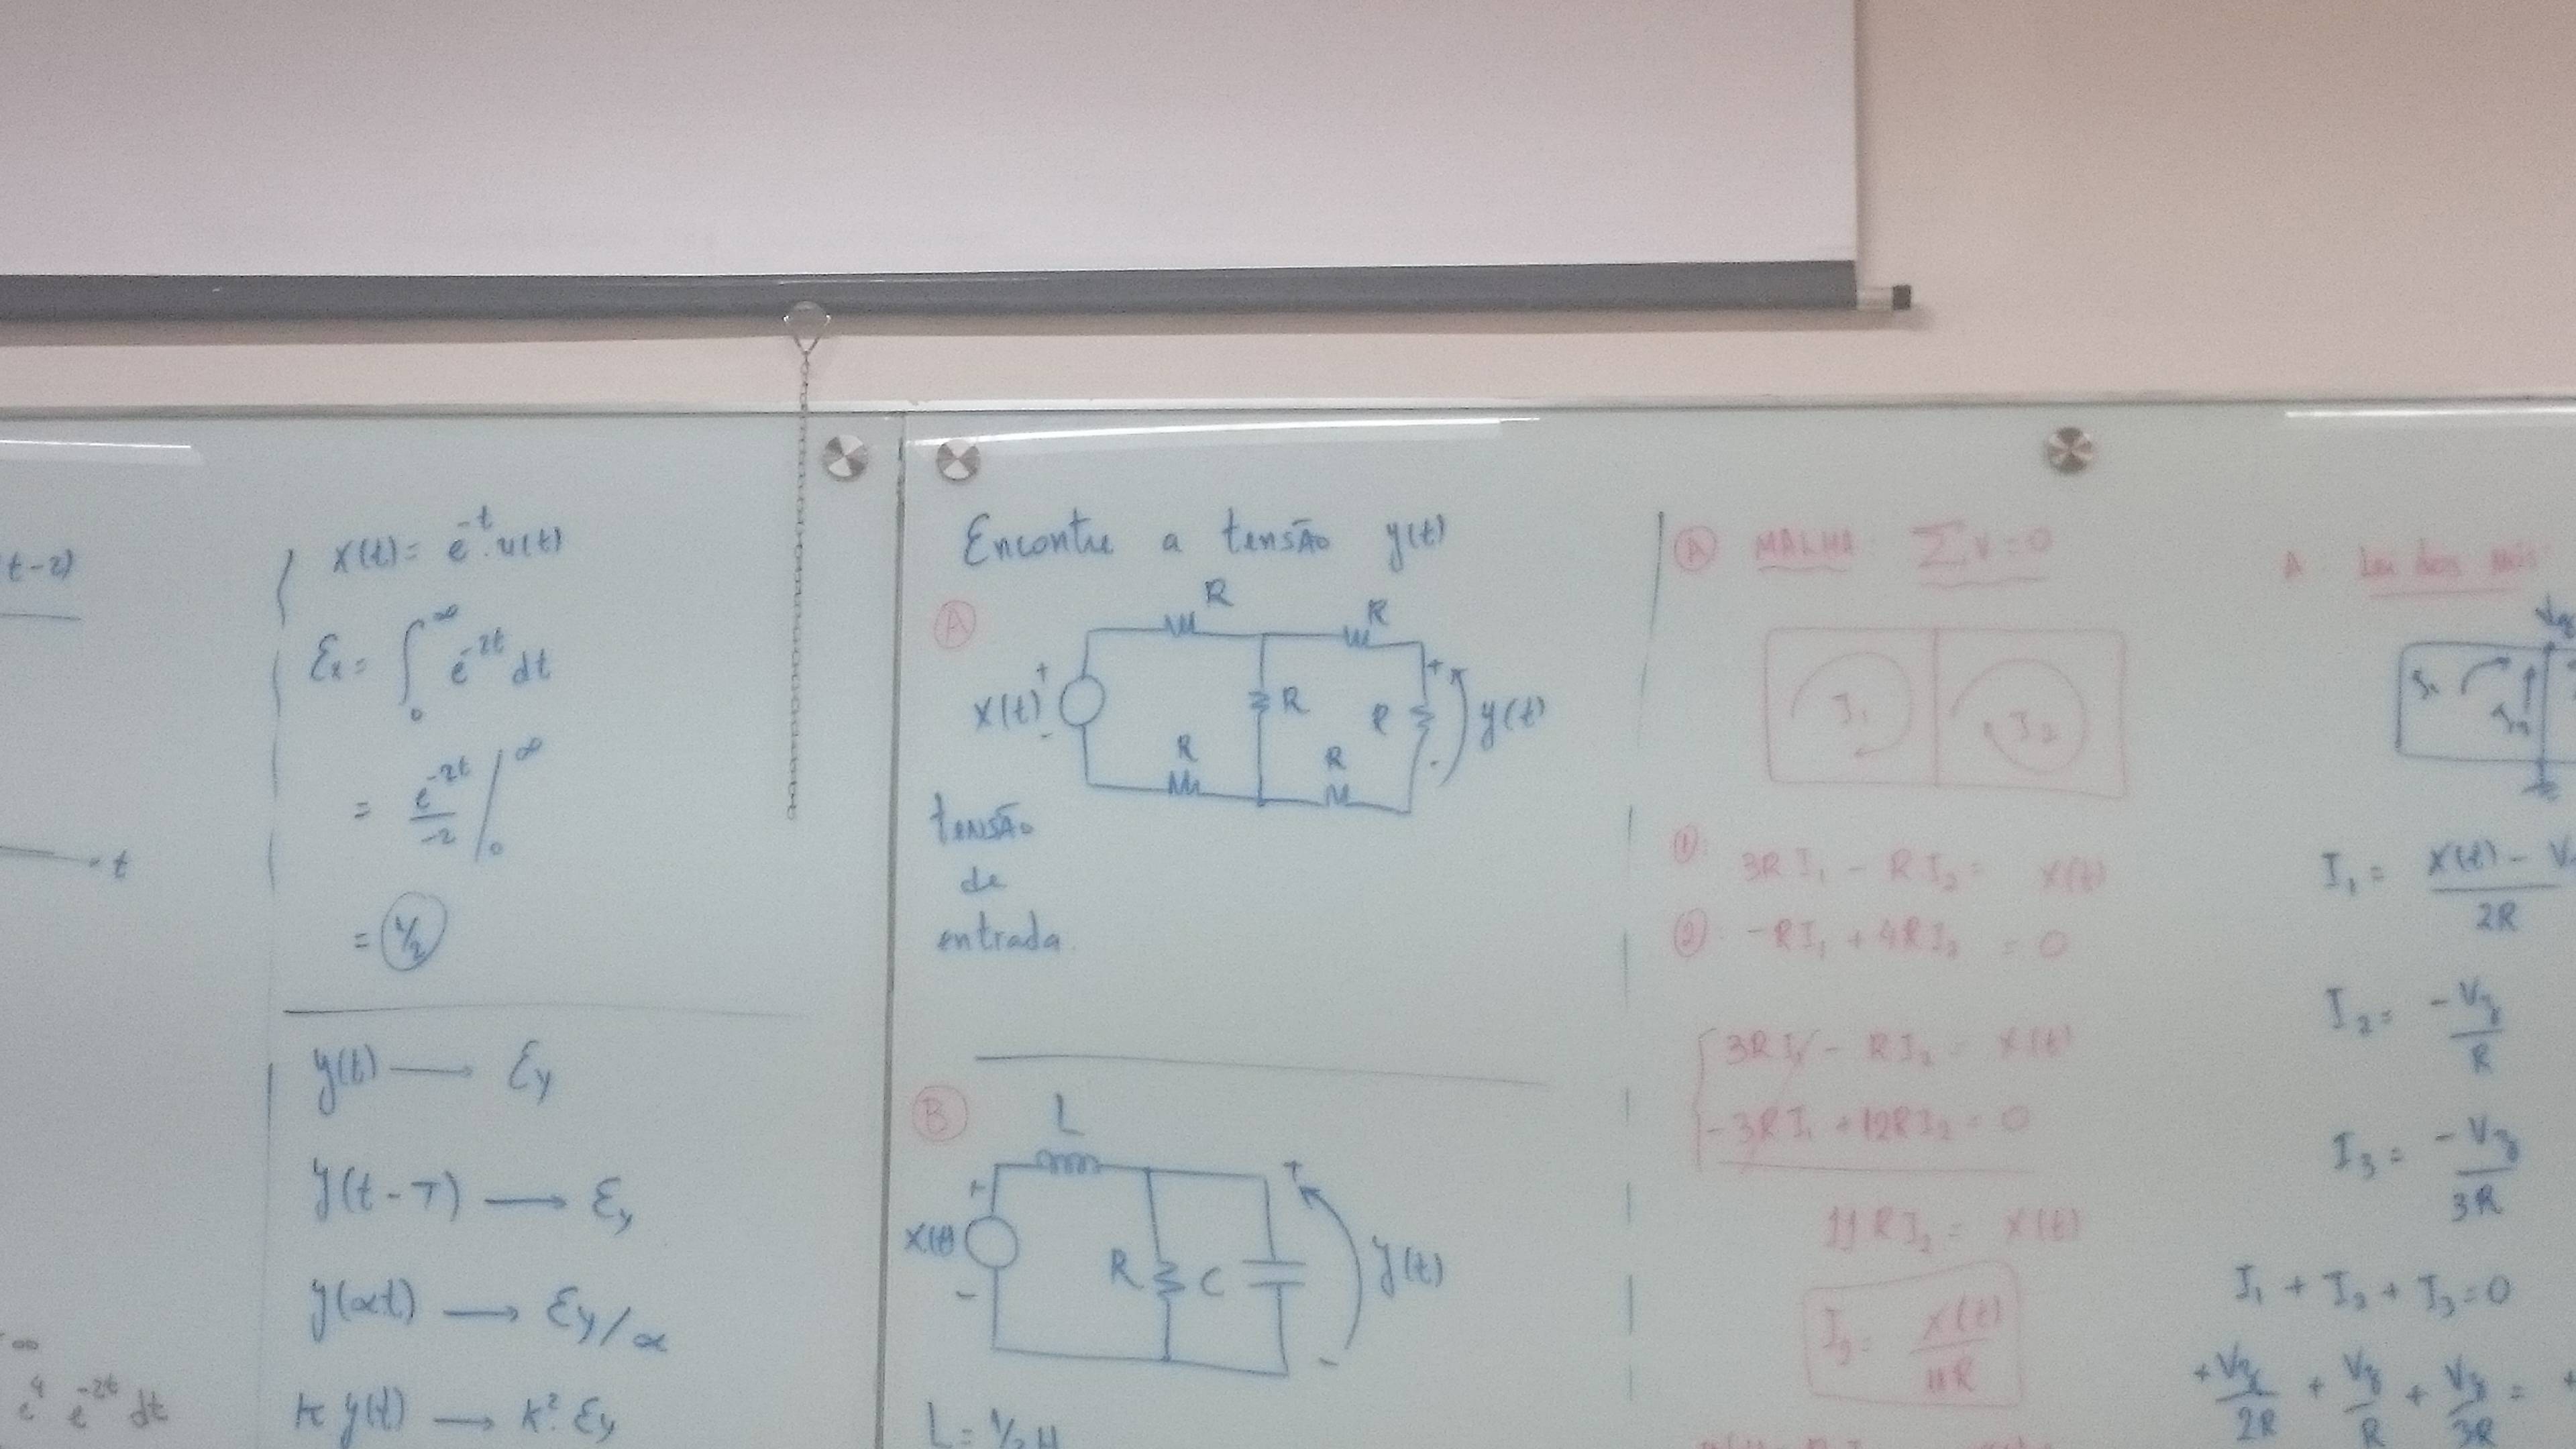 t-2)
t
∞
e⁴ e^-2t dt
x(t) = e^-t . u(t)
Ex = ∫₀^∞ e^-2t dt
= e^-2t / -2 |₀^∞
= 1/2
y(t) → Ey
y(t-T) → Ey
y(αt) → Ey/α
K y(t) → K². Ey
Encontre a tensão y(t)
A
R R
x(t) + - R R + - y(t)
R R
tensão
de
entrada.
B
L
x(t) + - R C + - y(t)
L = 1/2 H
A MALHA ΣV=0
I₁ I₂
1) 3RI₁ - RI₂ = x(t)
2) -RI₁ + 4RI₂ = 0
3RI₁ - RI₂ = x(t)
-3RI₁ + 12RI₂ = 0
11RI₂ = x(t)
I₂ = x(t) / 11R
A Lei dos nós
I₁ = x(t) - V / 2R
I₂ = -Vy / R
I₃ = -Vy / 3R
I₁ + I₂ + I₃ = 0
+Vy/2R + Vy/R + Vy/3R =